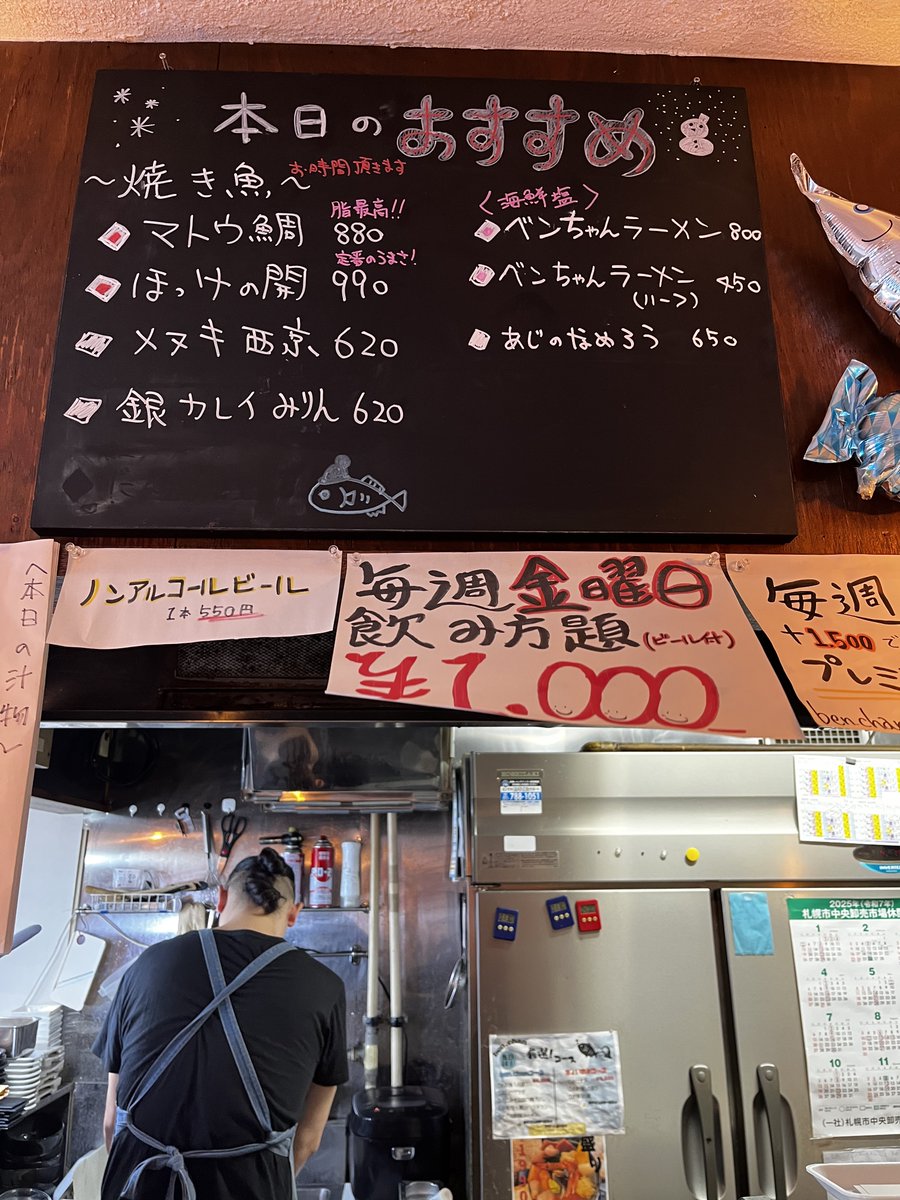 本日のおすすめ
～焼き魚～ お時間頂きます
脂最高!!
マトウ鯛 880
定番のうまさ!
ほっけの開 990
メヌキ西京 620
銀カレイみりん 620
〈海鮮塩〉
ベンちゃんラーメン 800
ベンちゃんラーメン 450
(ハーフ)
あじのなめろう 650
〈本日の汁物〉
ノンアルコールビール
1本 550円
毎週金曜日
飲み方題(ビール付)
1,000
毎週
+1,500で
プレミ
benchan
HOSHIZAKI
788-1051
2025年(令和7年)
札幌市中央卸売市場休
1 2
4 5
7 8
10 11
(一社)札幌市